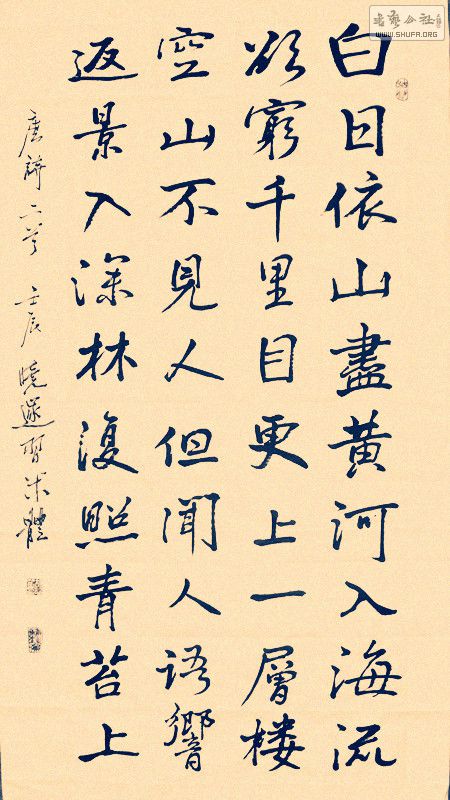 白日依山盡黄河入海流
欲窮千里目更上一層楼
空山不見人但聞人语響
返景入深林復照青苔上
唐詩二首 壬辰 曉遊習米體
書藝公社
WWW.SHUFA.ORG